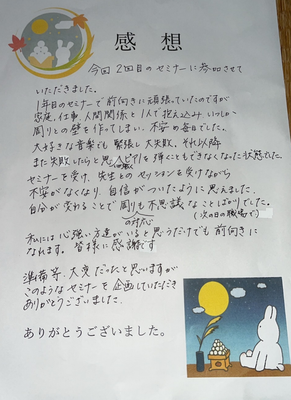 感想
今回2回目のセミナーに参加させて
いただきました。
1年目のセミナーで前向きに頑張っていたのですが
家庭、仕事、人間関係と1人で抱え込み、いつしか
周りとの壁を作ってしまい、不安の毎日でした。
大好きな音楽でも緊張し大失敗、それ以降
また失敗したらと思いピアノを弾くこともできなくなった状態でした
セミナーを受け、先生とのセッションを受けながら
不安がなくなり、自信がついたように思えました。
自分が変わることで周りも不思議なことばかりでした。
の対応
(次の日の職場で)
私には心強い方達がいると思うだけでも前向きに
なれます。皆様に感謝す
準備等、大変だったと思いますが
このようなセミナーを企画していただき
ありがとうございました。
ありがとうございました。